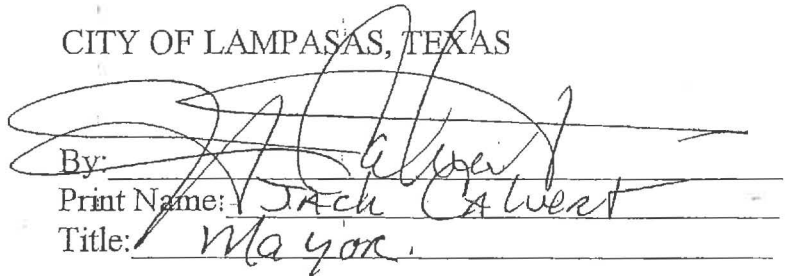 CITY OF LAMPASAS, TEXAS
By: Calvert
Print Name: JACK CALVERT
Title: Mayor.